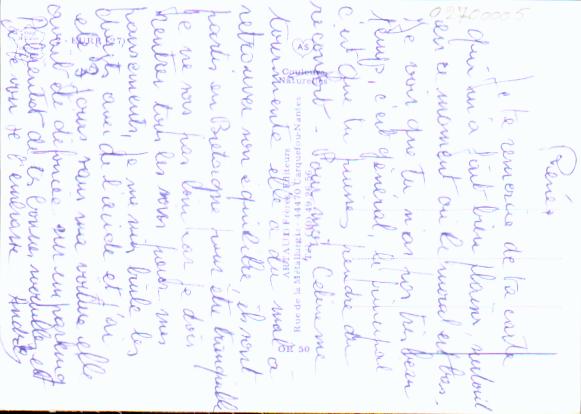 02700005
Renée
Je te remercie de ta carte
qui m'a fait bien plaisir surtout
en ce moment où le moral est bas.
Je vois que tu n'as pas très beau
temps, c'est général, le principal
c'est que tu puisses prendre du
réconfort - Pour moi, Céline me
tourmente elle a du mal à
retrouver son équilibre, ils sont
partis en Bretagne pour être tranquille
Je ne suis pas loin car je dois
rentrer tous les soirs pour mes
pansements, je me suis brûlé les
doigts avec de l'acide et j'ai
eu 3 jours sans ma voiture elle
avait été défoncée sur un parking
de tes bonnes nouvelles et
je t'embrasse Andrée
EURE (27)
AS
Couleurs
Naturelles
ARTAUD Frères, Editeurs
Rue de la Métallurgie - 44470 Carquefou-Nantes
OR 50